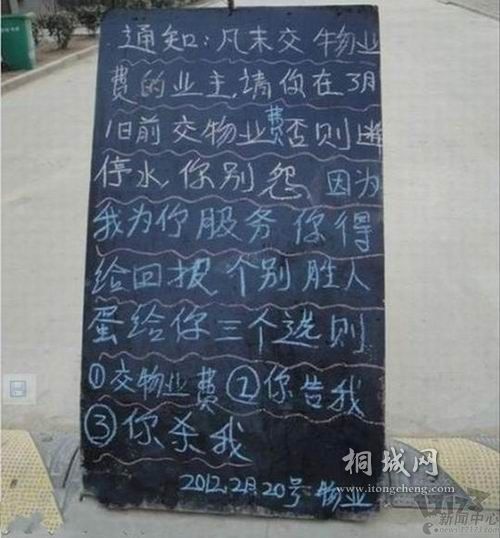 通知:凡末交物业
费的业主,请你在3月
1日前交物业费否则
停水,你别怨 因为
我为你服务你得
给回报 个别胜人
蛋给你三个选则
①交物业费②你告我
③你杀我
2012.2月20号 物业
桐城网
www.itongcheng.com
新闻中心
news.17173.com